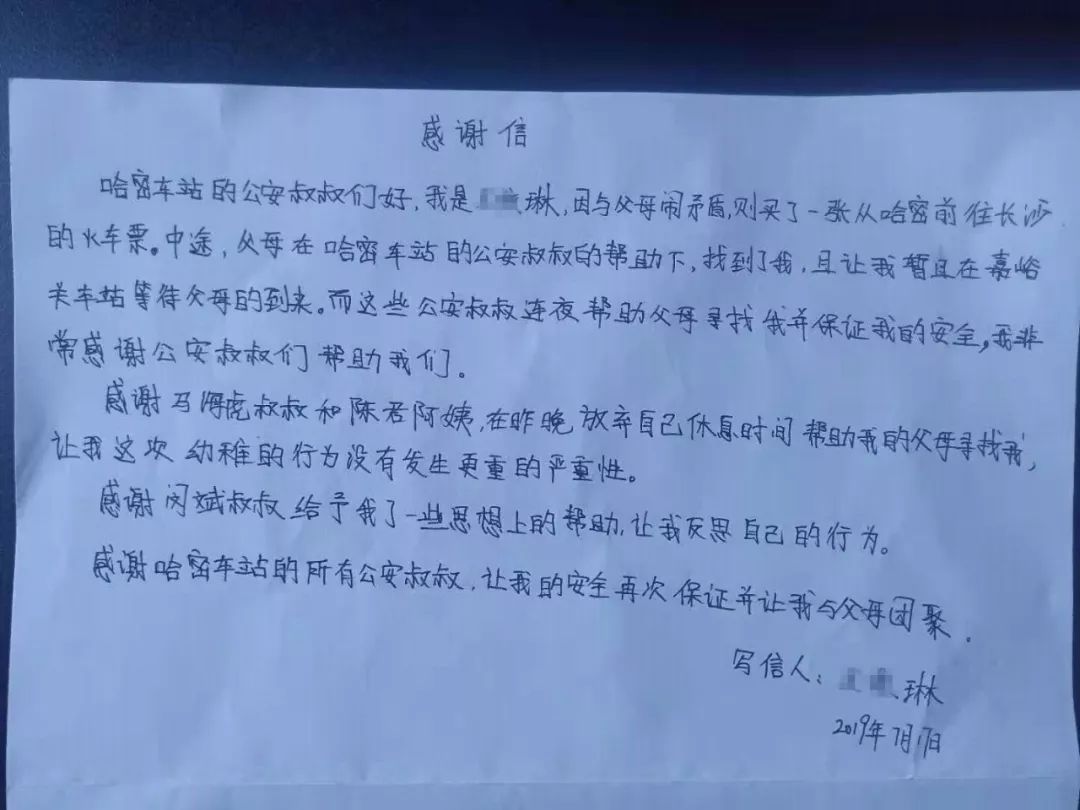 感谢信
哈密车站的公安叔叔们好,我是琳,因与父母闹矛盾,则买了一张从哈密前往长沙
的火车票。中途,父母在哈密车站的公安叔叔的帮助下,找到了我,且让我暂且在嘉峪
关车站等待父母的到来。而这些公安叔叔连夜帮助父母寻找我并保证我的安全,我非
常感谢公安叔叔们帮助我们。
感谢马海虎叔叔和陈君阿姨,在昨晚放弃自己休息时间帮助我的父母寻找我,
让我这次幼稚的行为没有发生更重的严重性。
感谢闵斌叔叔给予我了一些思想上的帮助,让我反思自己的行为。
感谢哈密车站的所有公安叔叔,让我的安全再次保证并让我与父母团聚.
写信人:琳
2019年7月17日